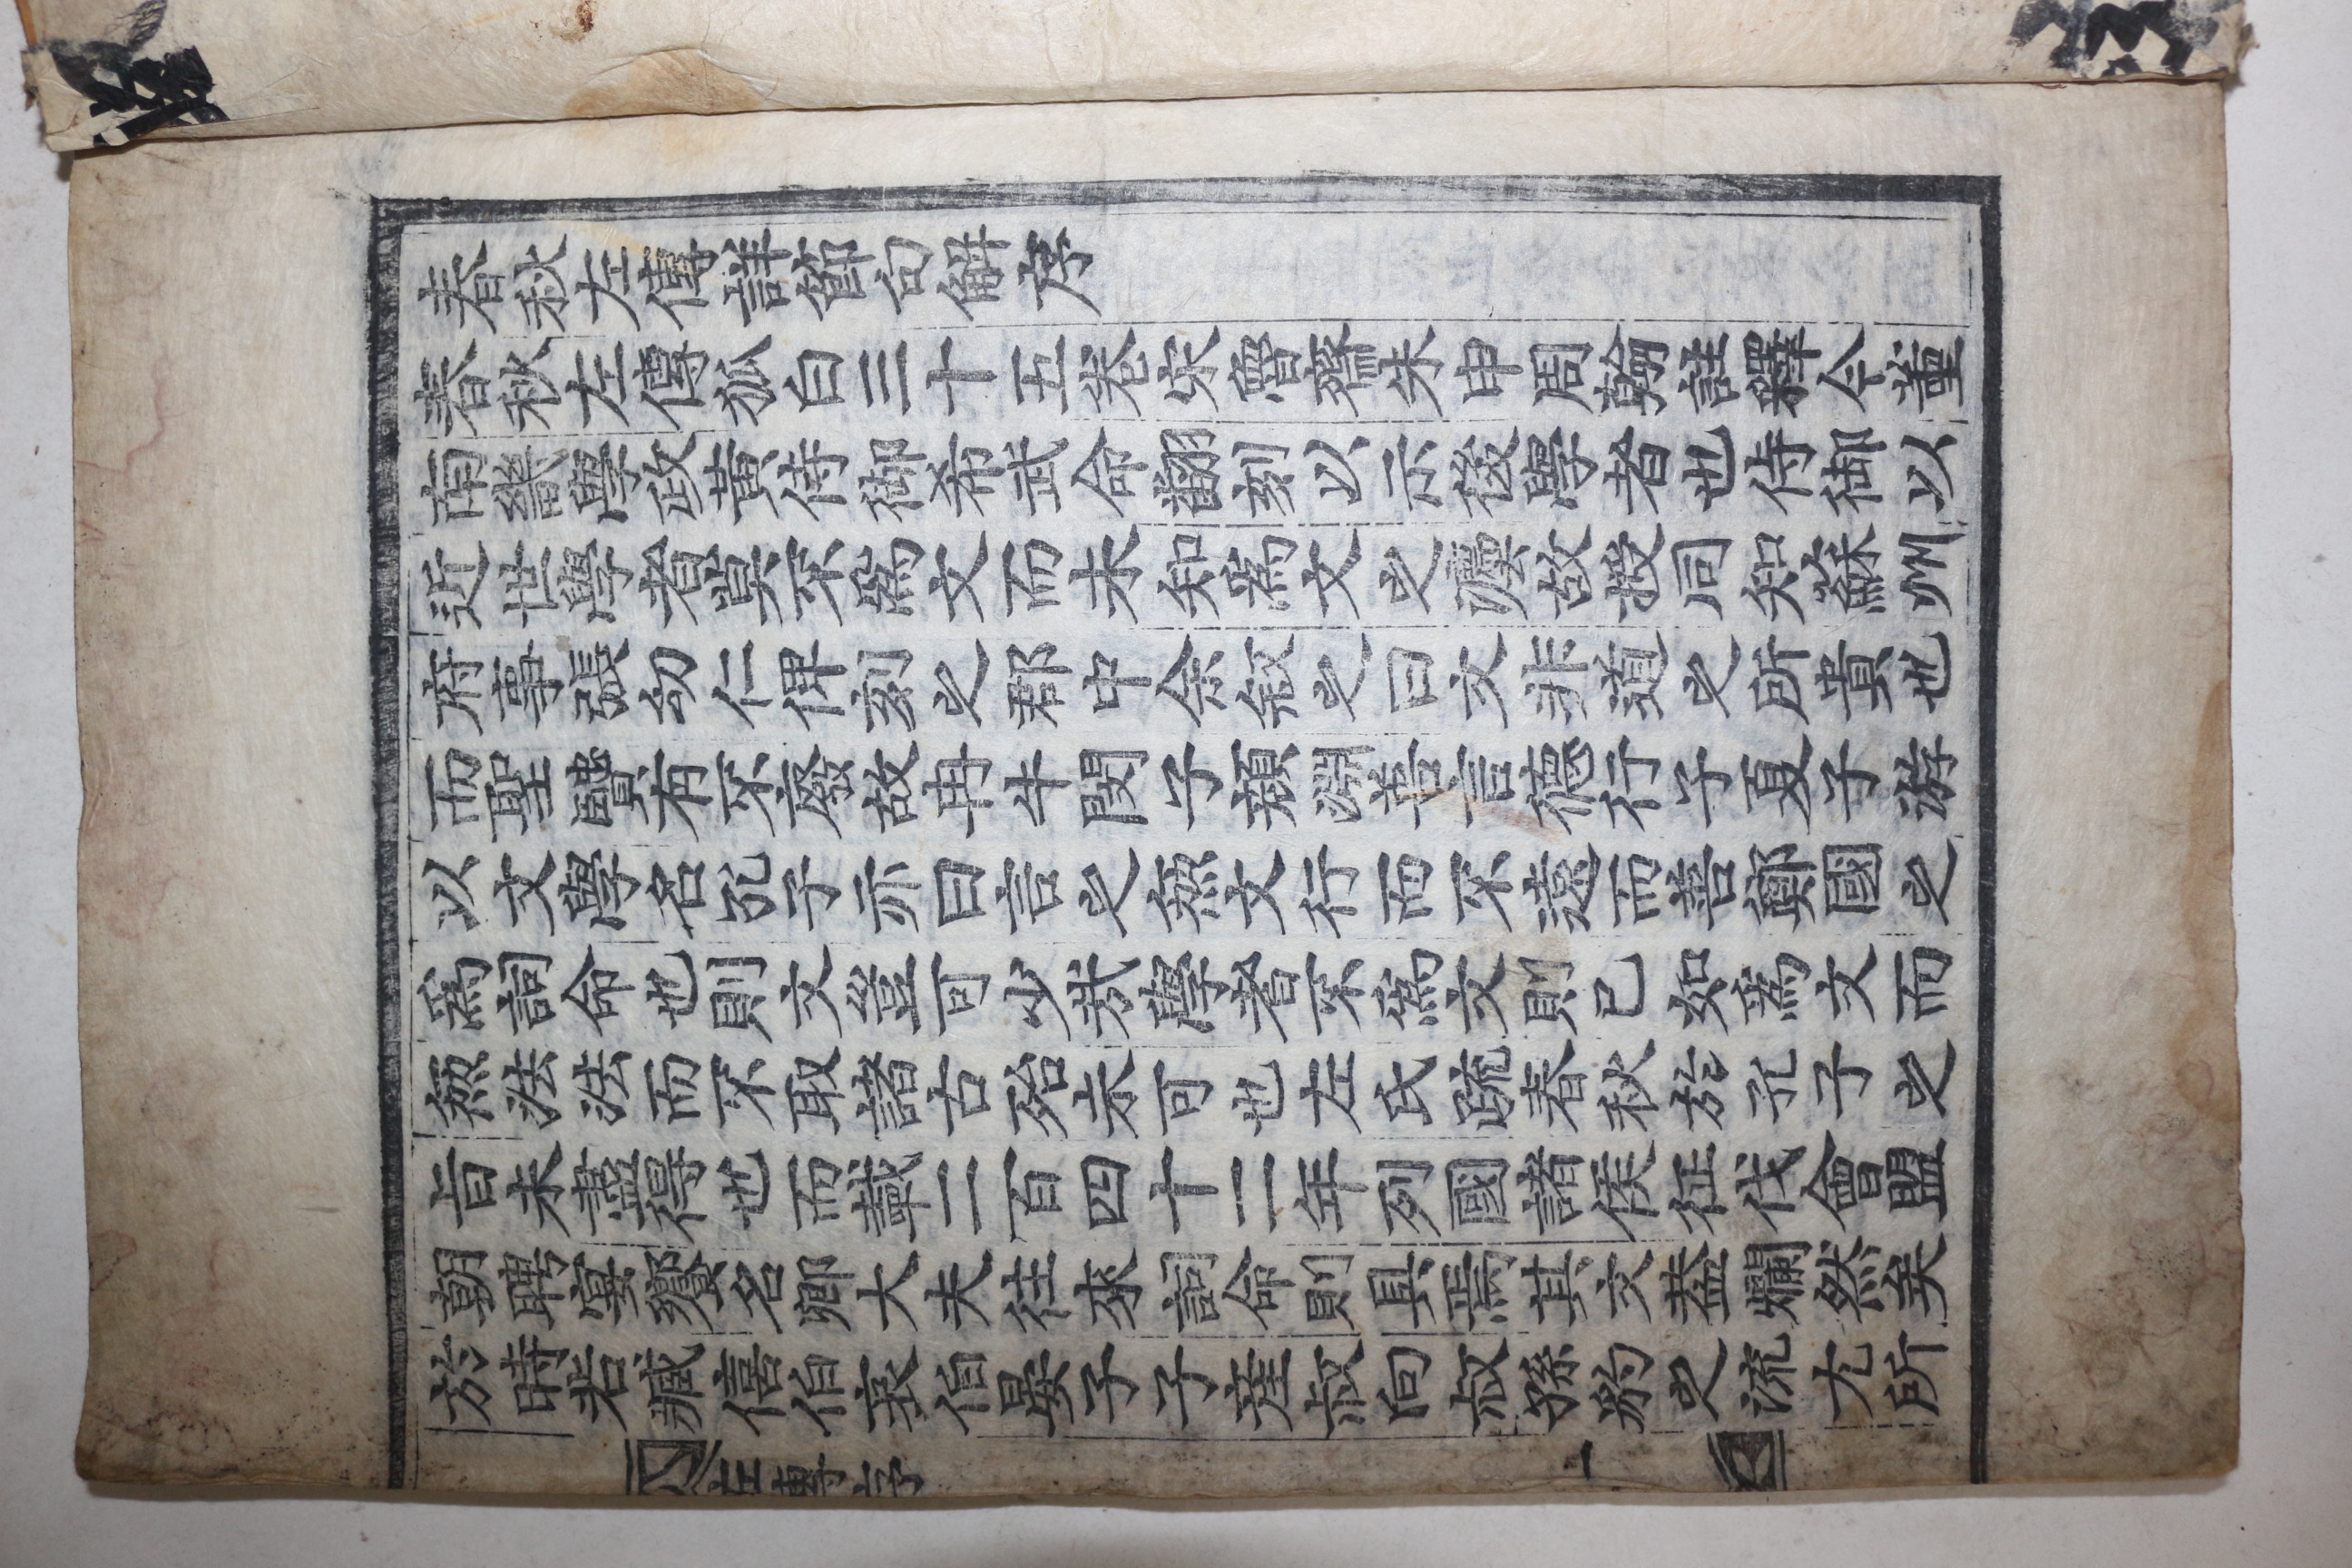 春秋左傳詳節句解序
春秋左傳狐白三十五卷宋魯齋朱申周翰註釋今董
南畿學政黃侍御希武命翻刻以示後學者也侍御以
近世學者莫不爲文而未知爲文之灋故授同知蘇州
府事張幼仁俾刻之郡中余叙之曰文非道之所貴也
而聖賢有不廢故冉牛閔子顏淵善言德行子夏子游
以文學名孔子亦曰言之無文行而不遠而善鄭國之
爲詞命也則文豈可少哉學者不爲文則已如爲文而
無法法而不取諸古殆未可也左氏疏春秋於孔子之
旨未盡得也而載二百四十二年列國諸侯征伐會盟
朝聘宴饗名卿大夫往來詞命則具焉其文葢爛然矣
於時若臧僖伯哀伯晏子子産叔向叔孫豹之流尤所
左傳序 一